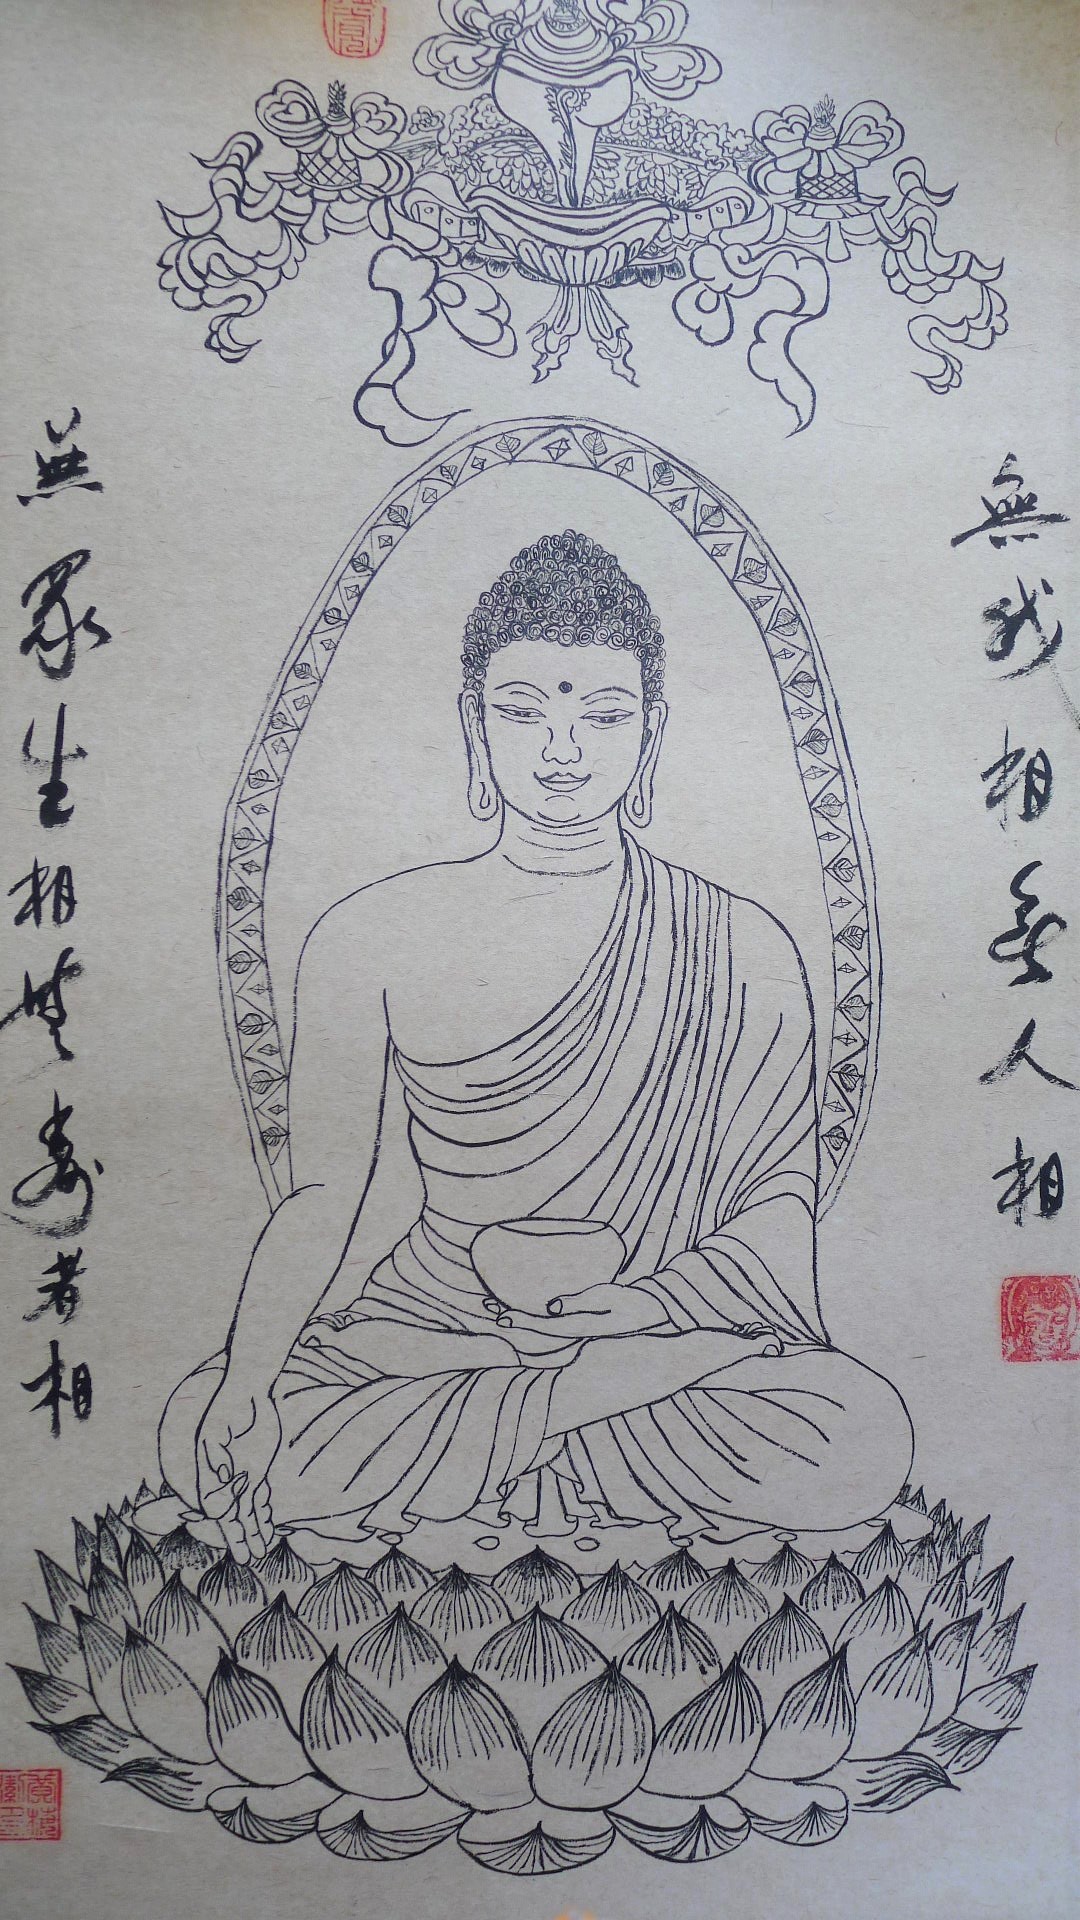 無我相無人相
無眾生相無壽者相